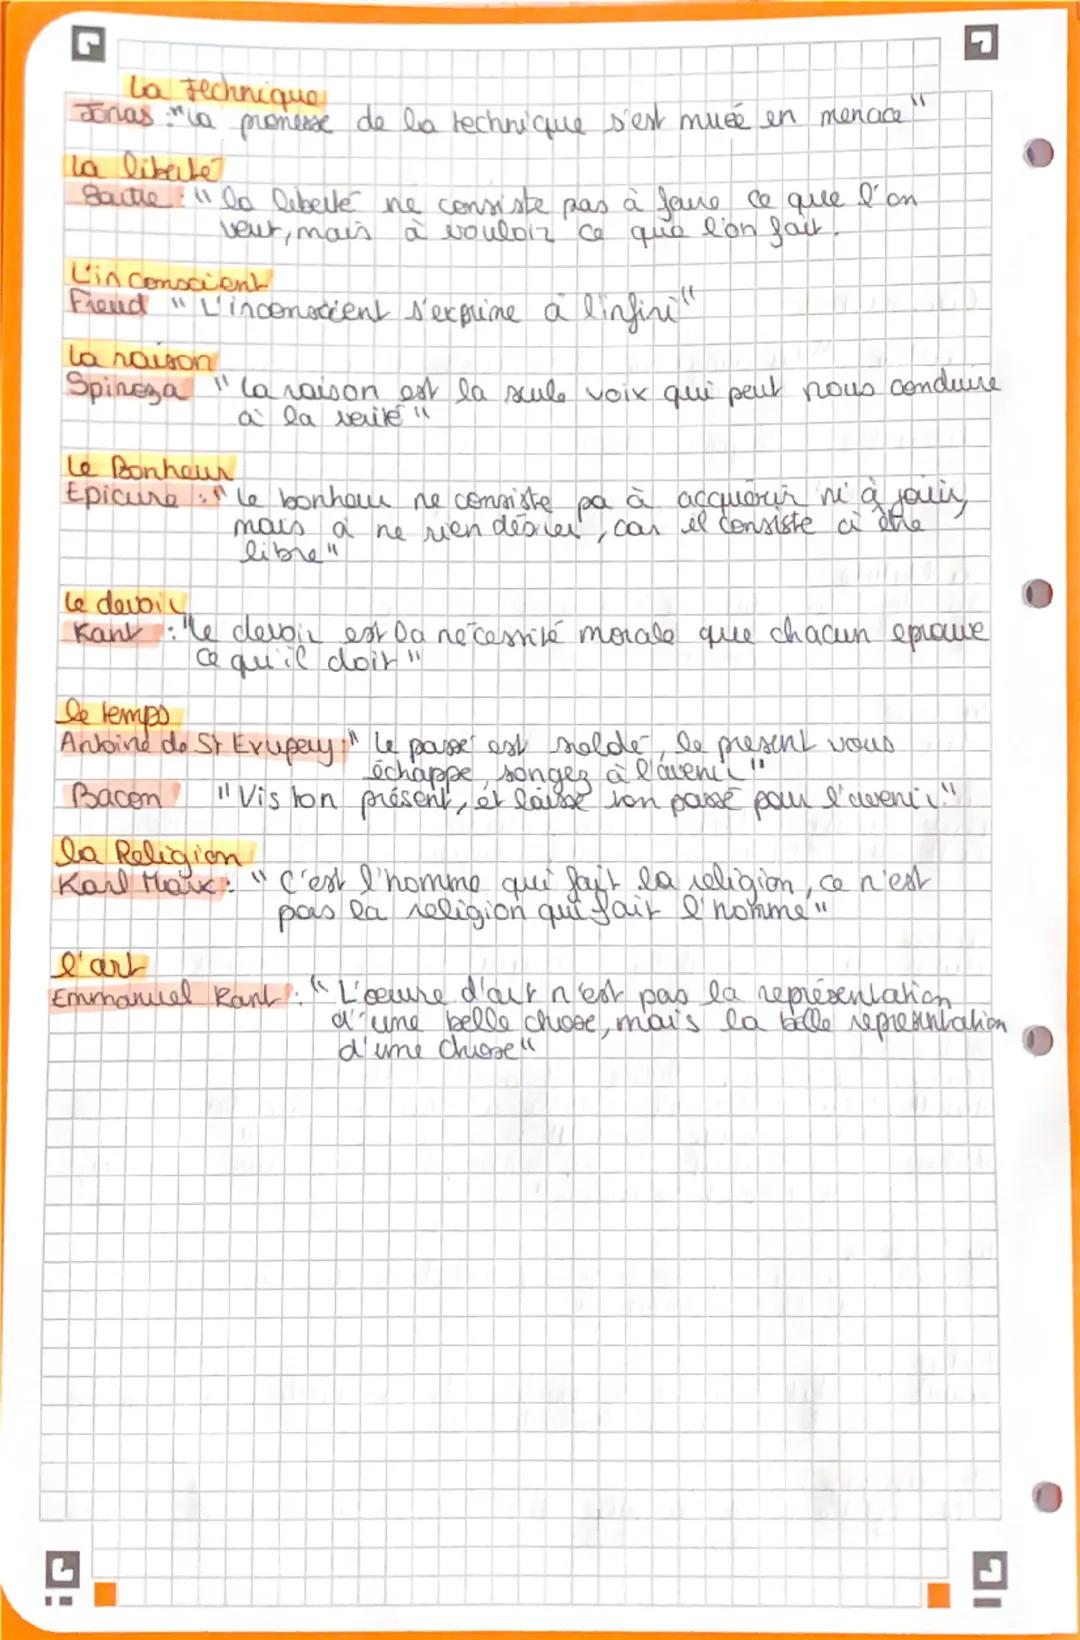 La Technique
Jonas : "La promesse de la technique s'est muée en menace"
La liberté
Sartre : "la liberté ne consiste pas à faire ce que l'on
veut, mais à vouloir ce que l'on fait.
L'inconscient
Freud "L'inconscient s'exprime à l'infini"
La raison
Spinoza "La raison est la seule voix qui peut nous conduire
à la vérité"
Le Bonheur
Epicure : "le bonheur ne consiste pa à acquérir ni à jouir,
mais à ne rien désirer, car il consiste à être
libre"
Le devoir
Kant : "le devoir est la nécessité morale que chacun eprouve
ce qu'il doit"
Le temps
Antoine de St Exupery : "Le passé est soldé, le présent vous
échappe, songez à l'avenir"
Bacon "Vis ton présent, et laisse ton passé pour l'avenir."
la Religion
Karl Marx : "C'est l'homme qui fait la religion, ce n'est
pas la religion qui fait l'homme"
l'art
Emmanuel Kant : "L'oeuvre d'art n'est pas la représentation
d'une belle chose, mais la belle représentation
d'une chose"